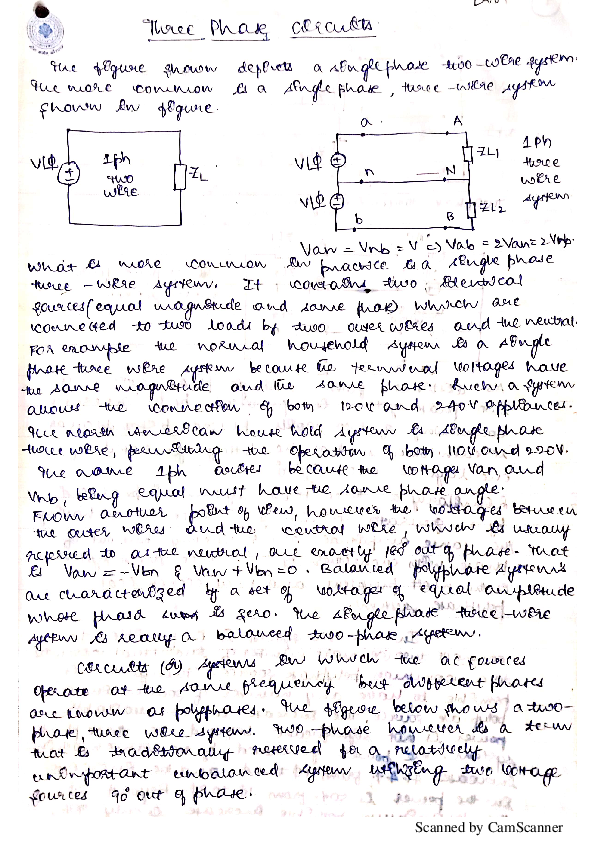 Three Phase Circuits
The figure shown depicts a single phase two-wire system.
The more common is a single phase, three-wire system
shown in figure.
a
A
VLΦ
1ph
two
wire
ZL
VLΦ
n
N
ZL1
1ph
three
wire
system
VLΦ
b
B
ZL2
Van = Vnb = V => Vab = 2Van = 2.Vnb.
What is more common in practice is a single phase
three-wire system. It contains two identical
sources (equal magnitude and same phase) which are
connected to two loads by two outer wires and the neutral.
For example the normal household system is a single
phase three wire system because the terminal voltages have
the same magnitude and the same phase. Such a system
allows the connection of both 120V and 240V appliances.
The north American house hold system is single phase
three wire, permitting the operation of both 110V and 220V.
The name 1ph arises because the voltages Van and
Vnb, being equal must have the same phase angle.
From another point of view, however the voltages between
the outer wires and the central wire, which is usually
referred to as the neutral, are exactly 180 out of phase. That
is Van = -Vbn & Van + Vbn = 0. Balanced polyphase systems
are characterized by a set of voltages of equal amplitude
whose phasor sum is zero. The single phase three-wire
system is really a balanced two-phase system.
Circuits (or) systems in which the ac sources
operate at the same frequency but different phases
are known as polyphases. The figure below shows a two-
phase, three wire system. Two-phase however is a term
that is traditionally reserved for a relatively
unimportant unbalanced system utilizing two voltage
sources 90° out of phase.
Scanned by CamScanner